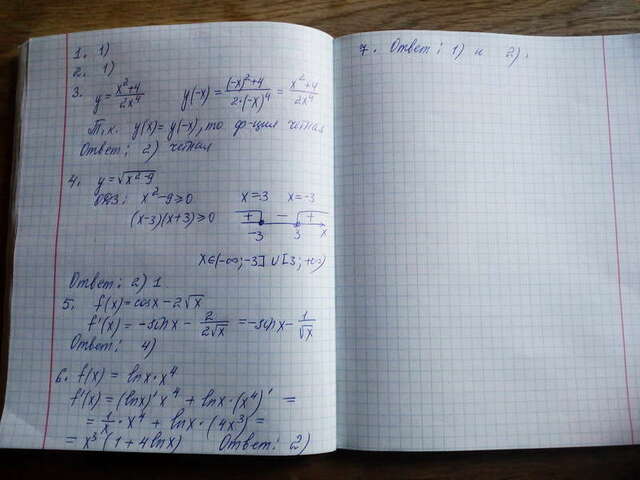 1. 1)
2. 1)
3. y = (x²+4)/(2x⁴) y(-x) = ((-x)²+4)/(2·(-x)⁴) = (x²+4)/(2x⁴)
Т.к. y(x) = y(-x), то ф-ция четная
Ответ: 2) четная
4. y = √(x²-9)
ОДЗ: x²-9 ≥ 0 x=3 x=-3
(x-3)(x+3) ≥ 0 + - +
-3 3 x
x∈(-∞;-3] ∪ [3;+∞)
Ответ: 2) 1
5. f(x) = cosx - 2√x
f'(x) = -sinx - 2/(2√x) = -sinx - 1/√x
Ответ: 4)
6. f(x) = lnx·x⁴
f'(x) = (lnx)' x⁴ + lnx·(x⁴)' =
= 1/x · x⁴ + lnx·(4x³) =
= x³(1+4lnx) Ответ: 2)
7. Ответ: 1) и 2).